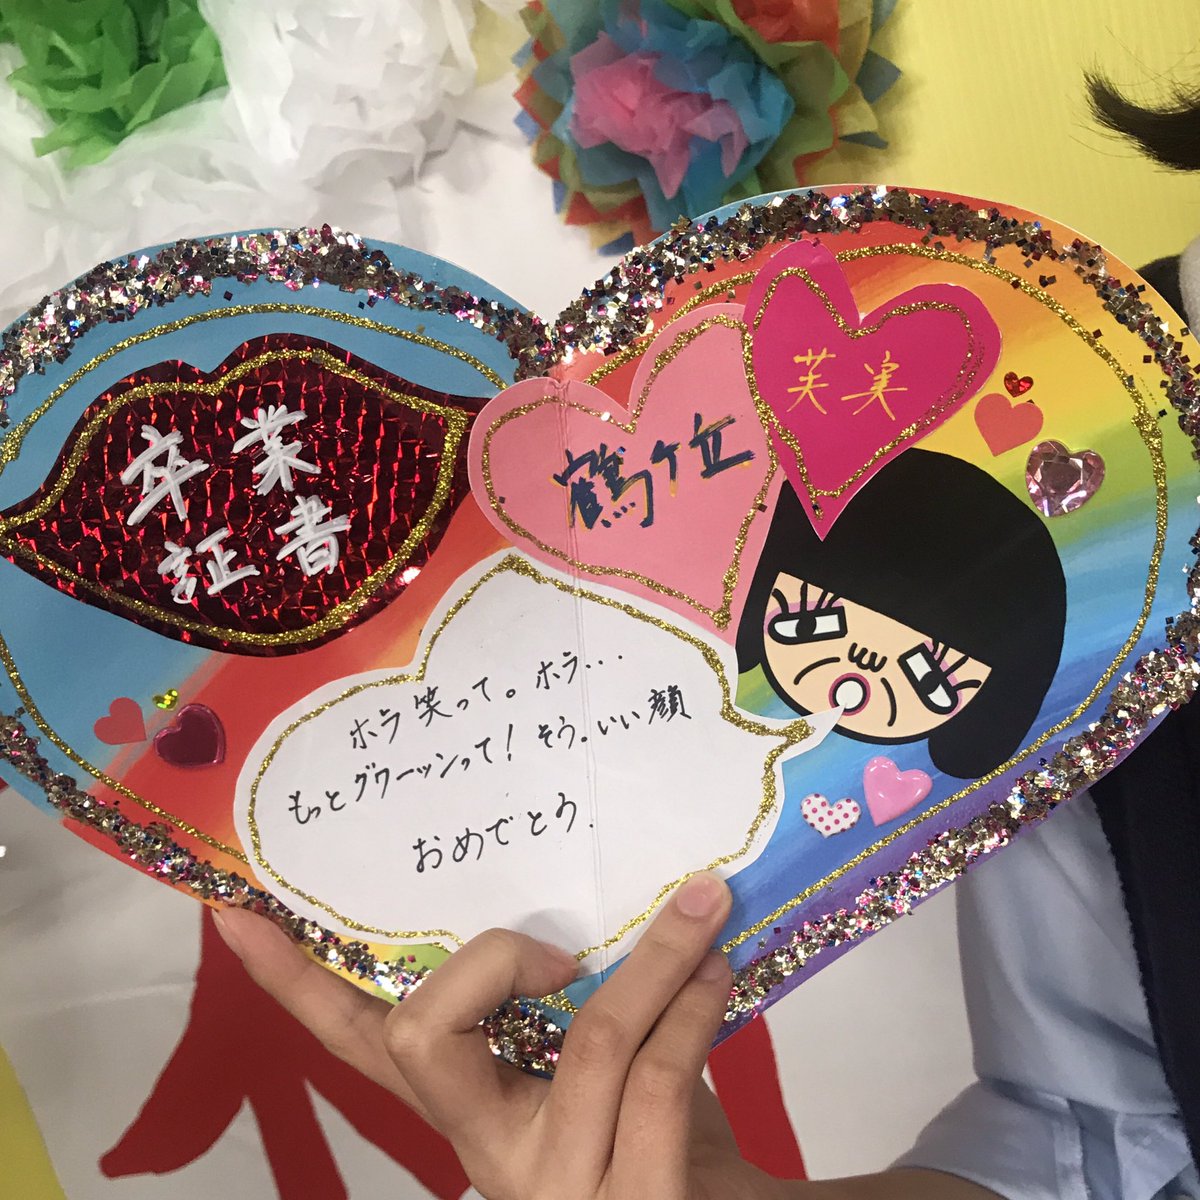 卒業
証書
鶴ケ丘
芙実
ホラ笑って。ホラ...
もっとグワーッンって！そう。いい顔
おめでとう.